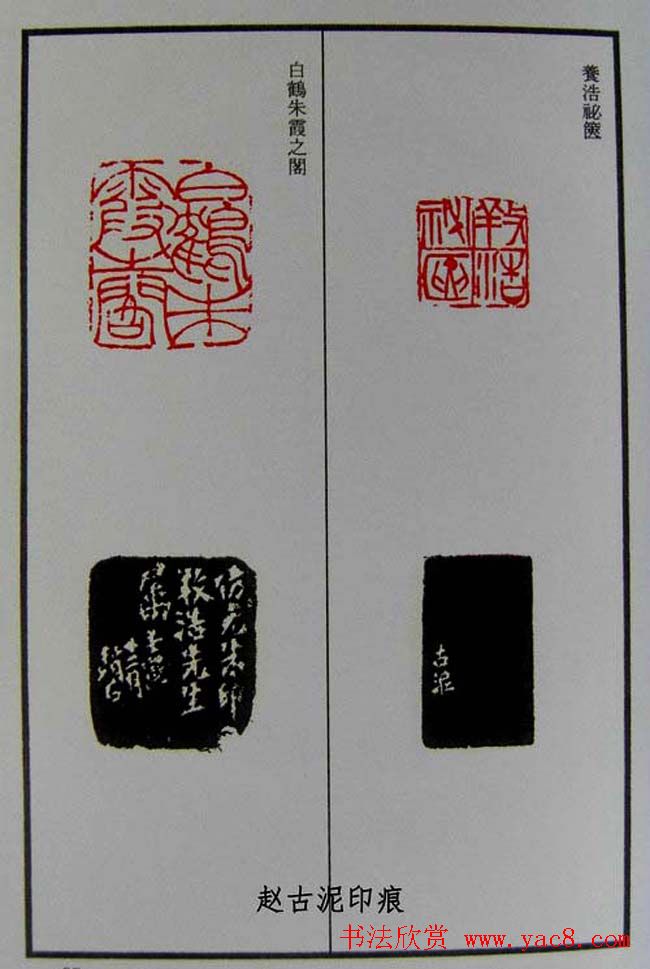 養浩祕篋
古泥
白鶴朱霞之閣
白鶴朱霞
仿元朱印
浩先生
赵古泥印痕
书法欣赏 www.yac8.com